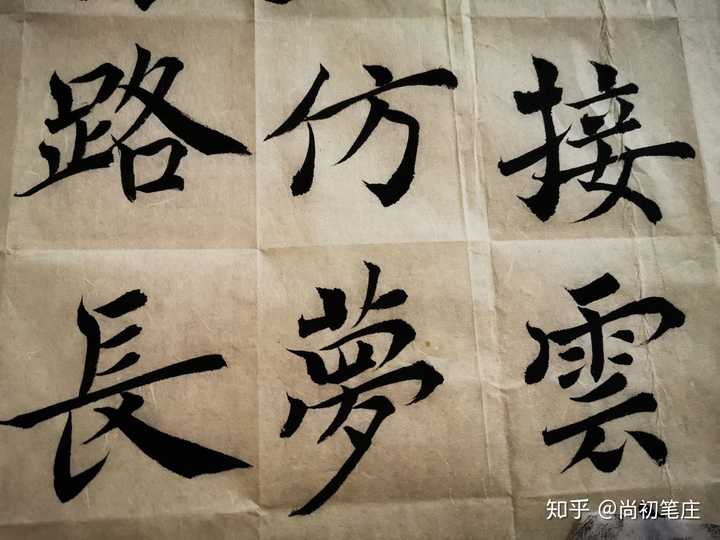 接雲
仿夢
路長
知乎 @尚初笔庄